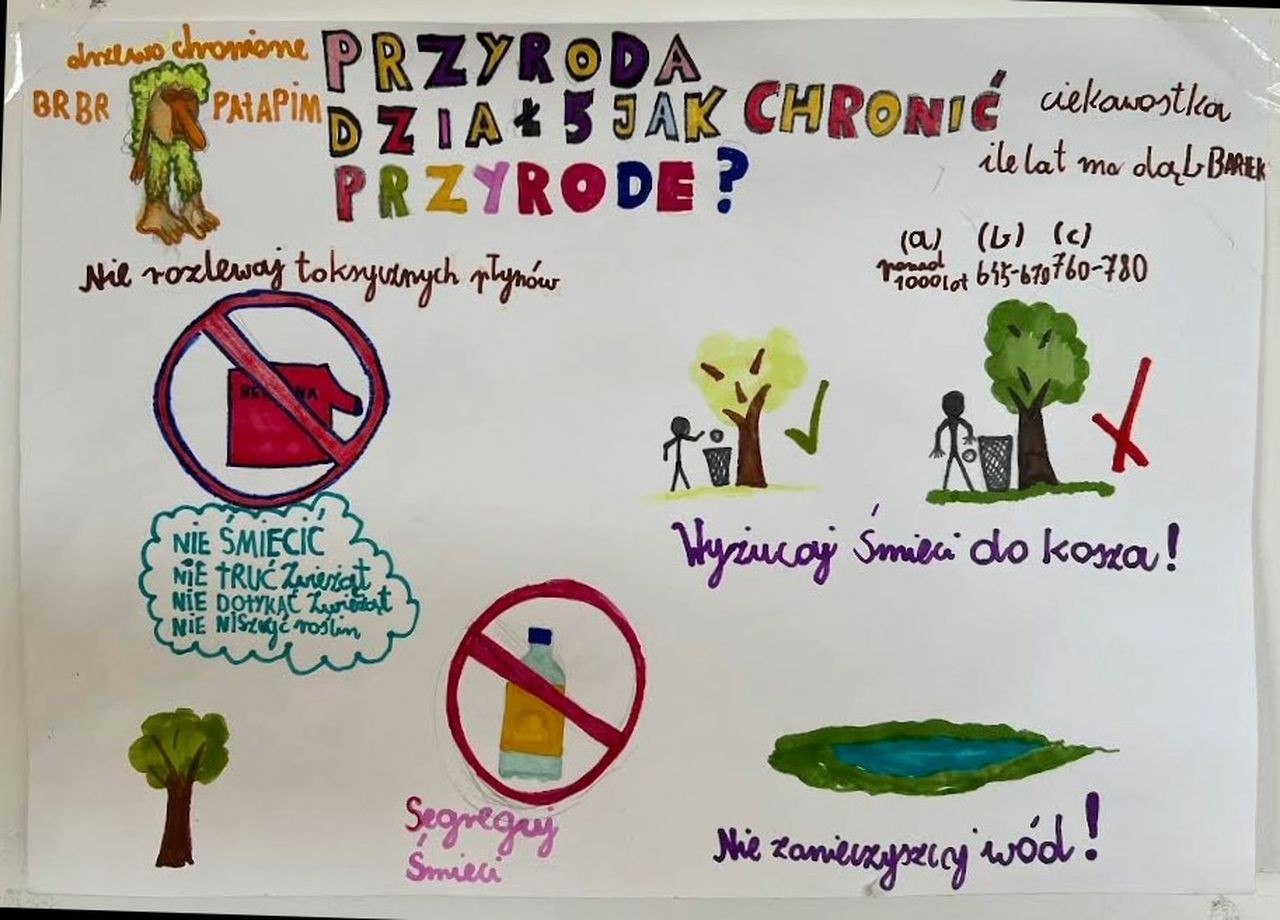 drzewo chronione
BRBR PATAPIM
PRZYRODA
DZIAŁ 5 JAK CHRONIĆ
PRZYRODE?
ciekawostka
ile lat ma dąb BARTEK
(a) (b) (c)
ponad 1000 lat 645-670 760-780
Nie rozlewaj toksycznych płynów
NIE ŚMIECIĆ
NIE TRUĆ Zwierząt
NIE DOTYKAĆ Zwierząt
NIE NISZCZYĆ roślin
Wyżucaj Śmieci do kosza!
Segreguj
Śmieci
Nie zanieczyszczj wód!